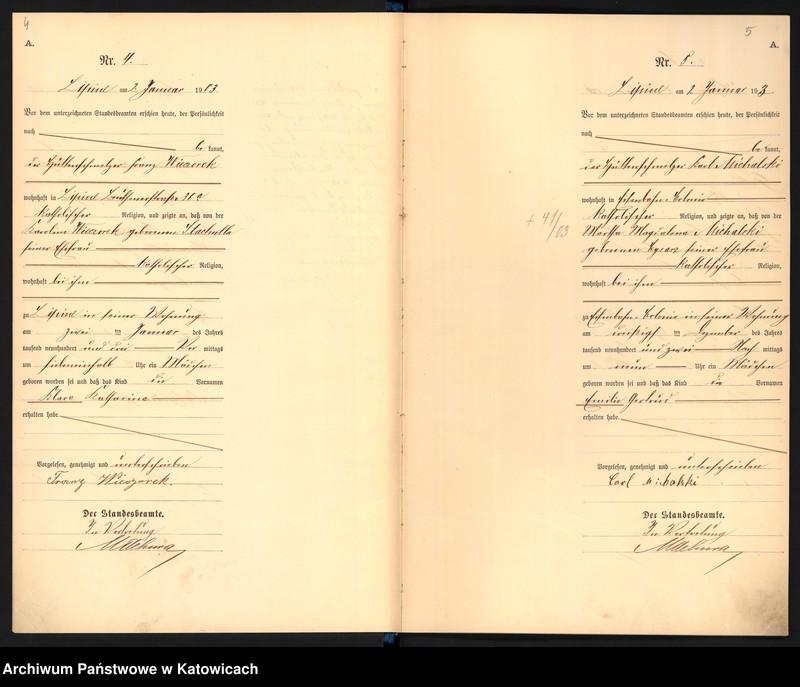 4
A.
Nr. 4.
Lipine am 2 Januar 1903.
Vor dem unterzeichneten Standesbeamten erschien heute, der Persönlichkeit
nach
be kannt,
der Hüttenschmelzer Franz Wieczorek
wohnhaft in Lipine
katholischer Religion, und zeigte an, daß von der
Karoline Wieczorek geborenen
seiner Ehefrau
katholischer Religion,
wohnhaft bei ihm
zu Lipine in seiner Wohnung
am zwei ten Januar des Jahres
tausend neunhundert und drei Vor mittags
um Uhr ein Mädchen
geboren worden sei und daß das Kind die Vornamen
Klara Katharina
erhalten habe
Vorgelesen, genehmigt und unterschrieben
Franz Wieczorek.
Der Standesbeamte.
In Vertretung
5
A.
Nr. 5.
Lipine am 2 Januar 1903
Vor dem unterzeichneten Standesbeamten erschien heute, der Persönlichkeit
nach
be kannt,
der Hüttenschmelzer Karl Michalski
wohnhaft in Eisenbahn-Colonie
katholischer Religion, und zeigte an, daß von der
Martha Magdalena Michalski
geborenen seiner Ehefrau
katholischer Religion,
wohnhaft bei ihm
+ 41/03
zu Eisenbahn-Colonie in seiner Wohnung
am dreißigsten Dezember des Jahres
tausend neunhundert und zwei Nach mittags
um neun Uhr ein Mädchen
geboren worden sei und daß das Kind die Vornamen
Emilie Gertrud
erhalten habe
Vorgelesen, genehmigt und unterschrieben
Carl Michalski
Der Standesbeamte.
In Vertretung
Archiwum Państwowe w Katowicach